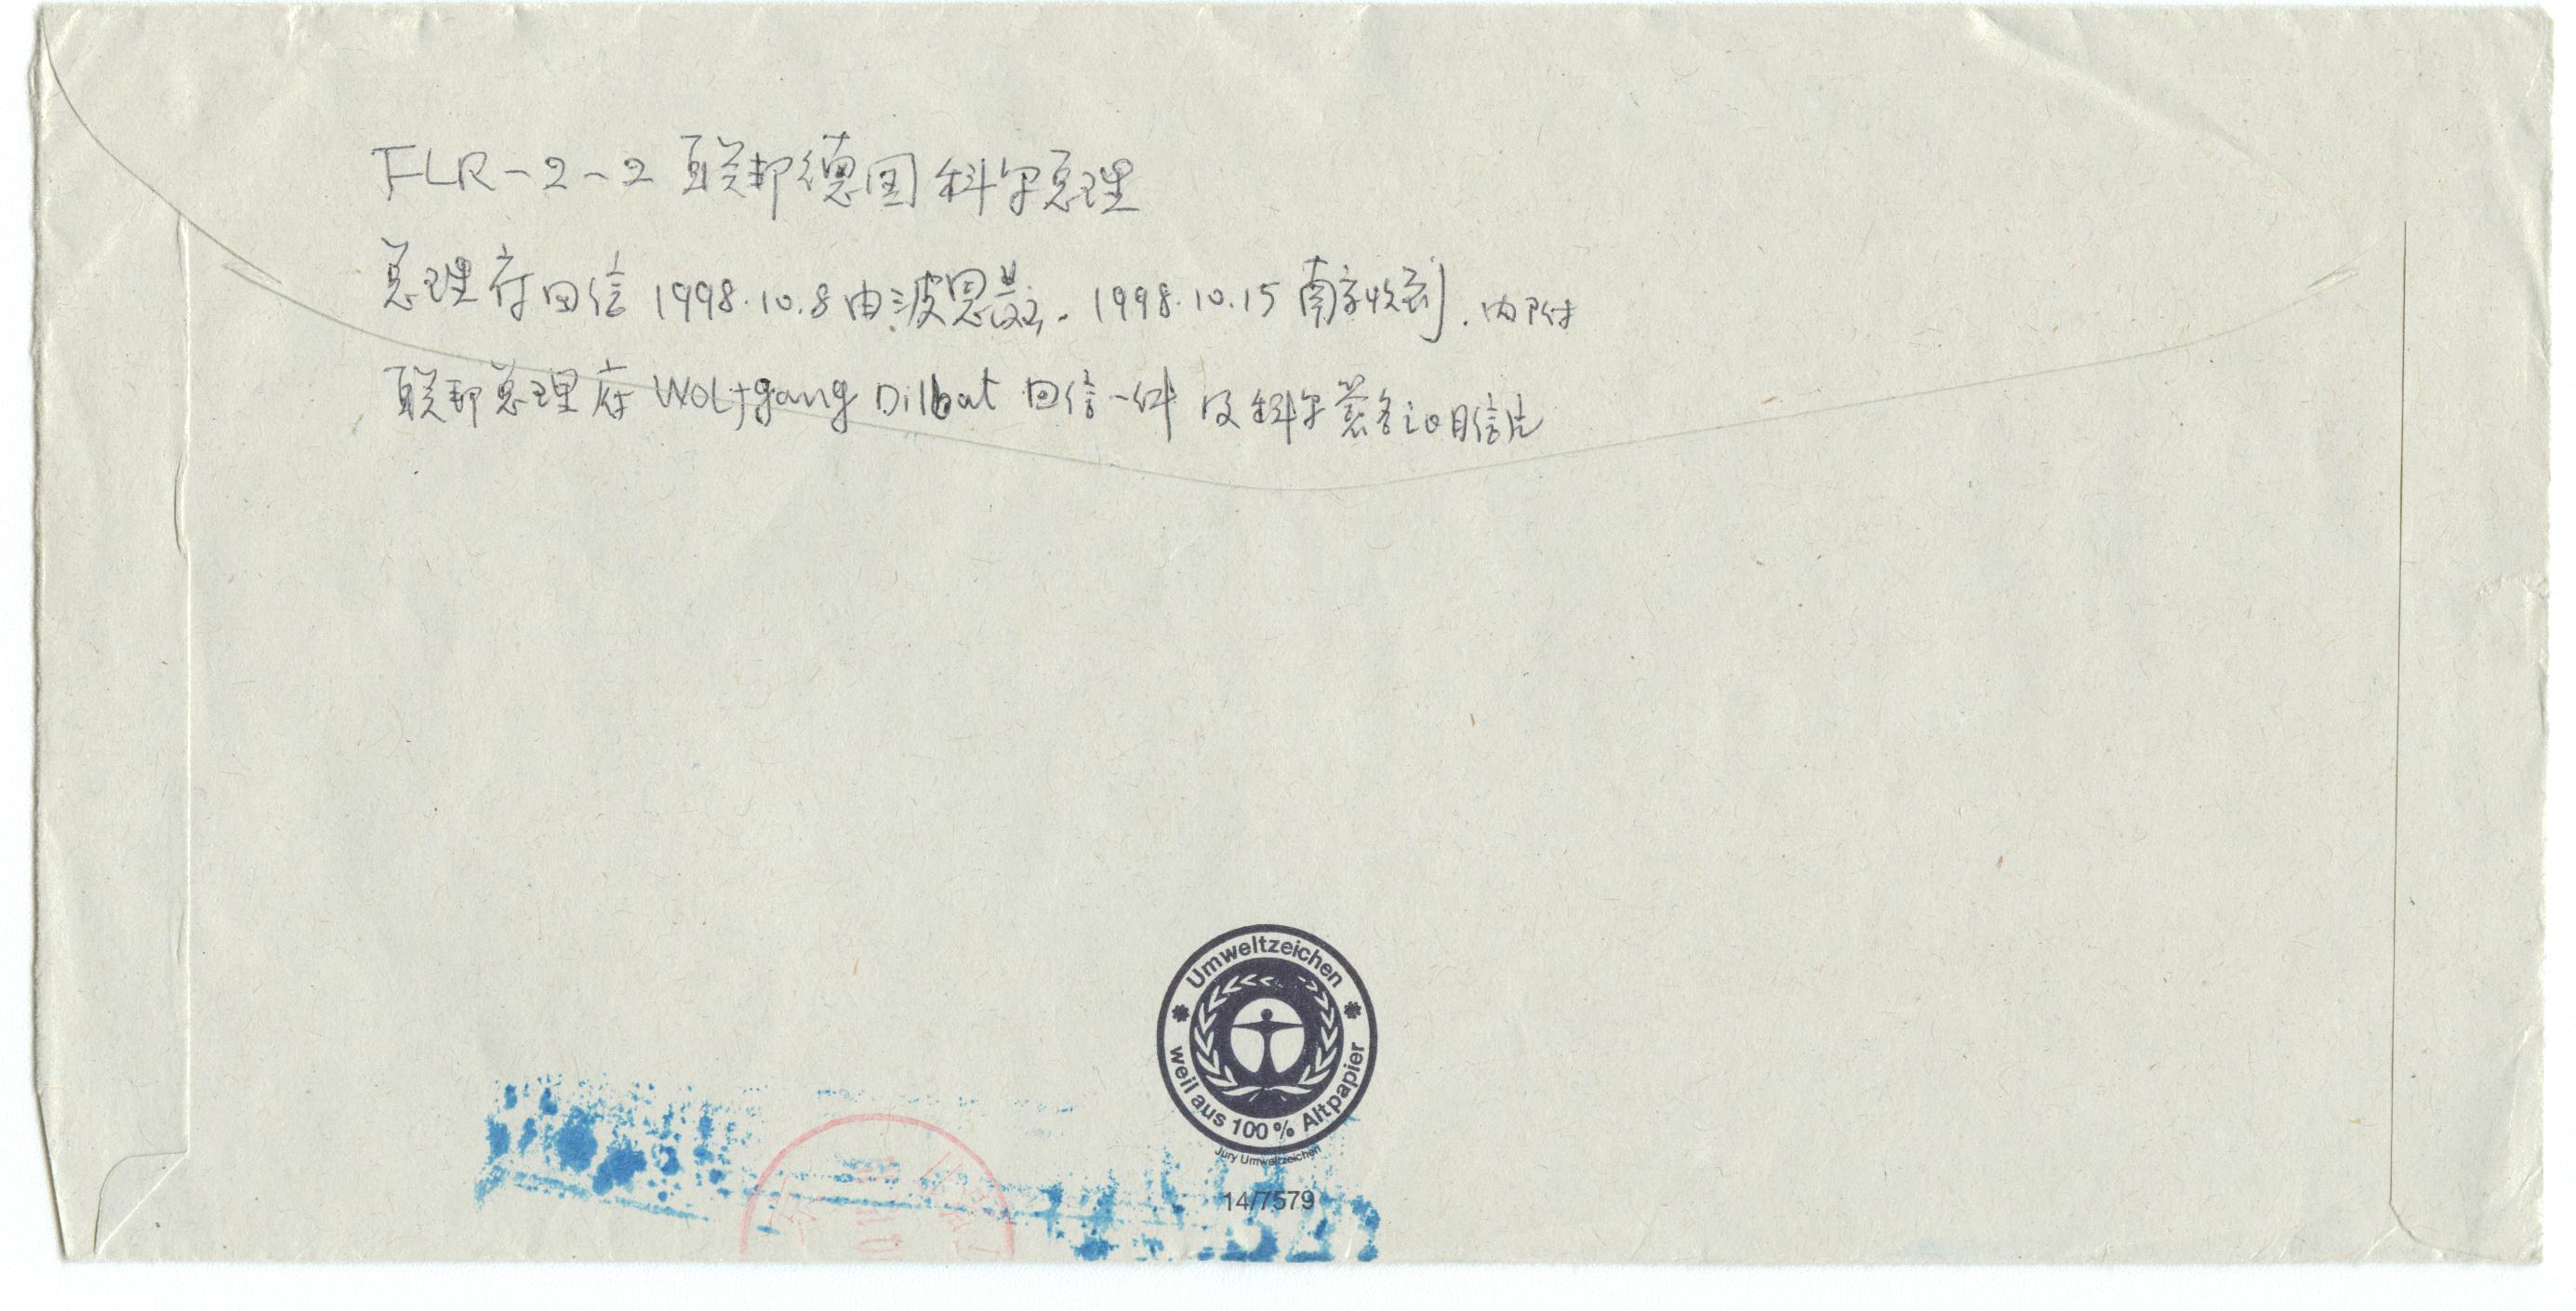 FLR-2-2 联邦德国科尔总理
总理府回信 1998.10.8由波恩寄. 1998.10.15 南京收到. 内附
联邦总理府 Wolfgang Dilbat 回信一件 及科尔签名之明信片
Umweltzeichen
weil aus 100% Altpapier
Jury Umweltzeichen
14/7579